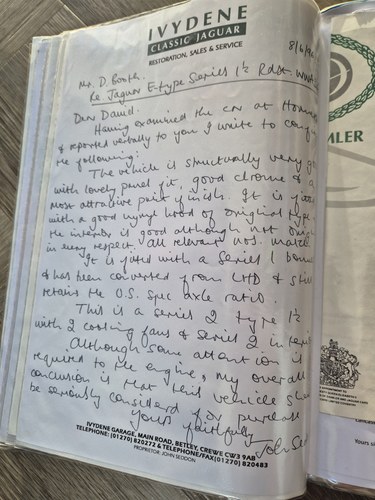 IVYDENE
CLASSIC JAGUAR
RESTORATION, SALES & SERVICE
8/6/9
Mr. D. Booth.
Re Jaguar E-type Series 1½ Rdst.
Dear David.
Having examined the car at
& reported verbally to you I write to
the following:
The vehicle is structurally very
with lovely panel fit, good chrome & a
most attractive paint finish. It is fitted
with a good hood of original type
the interior is good although not
in every respect. All relevant nos. match.
It is fitted with a Series 1
& has been converted from LHD & still
retains the U.S. Spec axle ratio.
This is a series 2 type 1½
with 2 cooling fans & Series 2
Although some attention is
required to the engine, my overall
conclusion is that this vehicle
be seriously considered for purchase
Yours faithfully
John
IVYDENE GARAGE, MAIN ROAD, BETLEY, CREWE CW3 9AB
TELEPHONE: (01270) 820272 & TELEPHONE/FAX (01270) 820483
PROPRIETOR: JOHN SEDDON
MLER